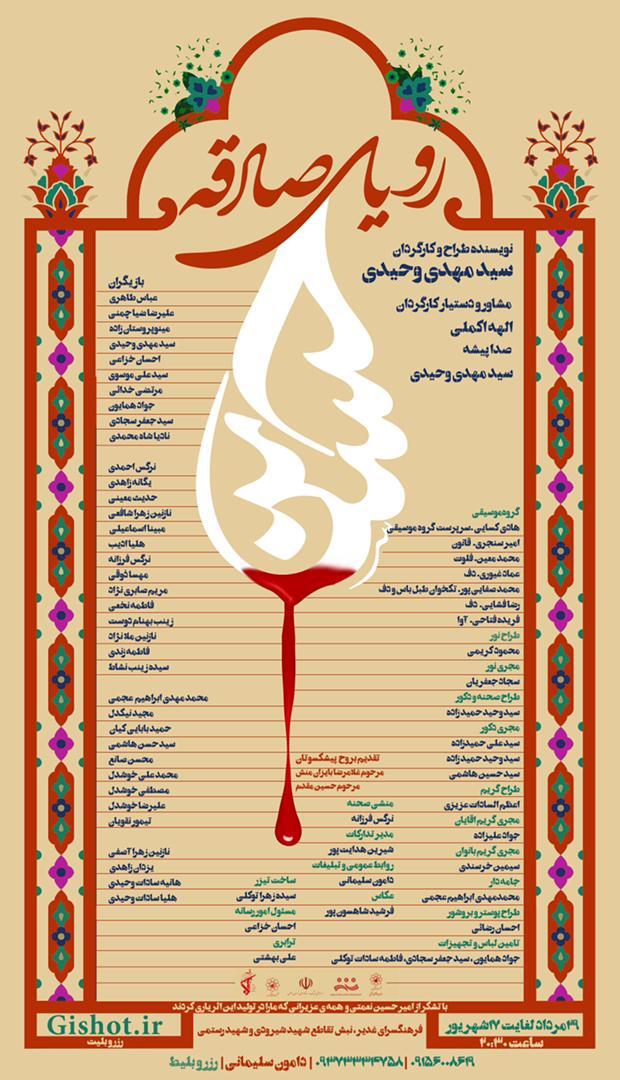 رویای صادقه
نویسنده طراح و کارگردان
سید مهدی وحیدی
مشاور و دستیار کارگردان
الهه اکملی
صداپیشه
سید مهدی وحیدی
بازیگران
عباس طاهری
علیرضا ضیا چمنی
مینو پروستان زاده
سید مهدی وحیدی
احسان خزاعی
سید علی موسوی
مرتضی خدائی
جواد همایون
سید جعفر سجادی
نادیا شاه محمدی
نرگس احمدی
یگانه زاهدی
حدیث معینی
نازنین زهرا شافعی
مبینا اسماعیلی
هلیا ادیب
نرگس فرزانه
مهسا ذوقی
مریم صابری نژاد
فاطمه نخعی
زینب بهنام دوست
نازنین ملا نژاد
فاطمه زندی
سیده زینب نشاط
محمد مهدی ابراهیم عجمی
مجید نیکدل
حمید بابایی کیان
سید حسن هاشمی
محسن صانع
محمد علی خوشدل
مصطفی خوشدل
علیرضا خوشدل
تیمور تقویان
نازنین زهرا آصفی
یزدان زاهدی
هانیه سادات وحیدی
هلیا سادات وحیدی
گروه موسیقی
هادی کسایی .سرپرست گروه موسیقی
امیر سنجری. قانون
محمد معین. فلوت
عماد غیوری. دف
محمد صفایی پور. تکخوان طبل باس و دف
رضا فشایی. دف
فریده فتاحی. آوا
طراح نور
محمود کریمی
مجری نور
سجاد جعفریان
طراح صحنه و دکور
سید وحید حمیدزاده
مجری دکور
سید علی حمیدزاده
سید وحید حمیدزاده
سید حسین هاشمی
طراح گریم
اعظم السادات عزیزی
مجری گریم آقایان
جواد علیزاده
مجری گریم بانوان
سیمین خرسندی
جامه دار
محمد مهدی ابراهیم عجمی
طراح پوستر و بروشور
احسان رضائی
تامین لباس و تجهیزات
جواد همایون ، سید جعفر سجادی، فاطمه سادات توکلی
تقدیم بروح پیشکسوتان
مرحوم غلامرضا بایزان منش
مرحوم حسین مقدم
منشی صحنه
نرگس فرزانه
مدیر تدارکات
شیرین هدایت پور
روابط عمومی و تبلیغات
دامون سلیمانی
عکاس
فرشید شاهسون پور
ساخت تیزر
سیده زهرا توکلی
مسئول امور رسانه
احسان خزاعی
ترابری
علی بهشتی
با تشکر از امیر حسین نعمتی و همه ی عزیزانی که ما را در تولید این اثر یاری کردند
۲۹ مرداد لغایت ۱۷ شهریور
ساعت ۲۰:۳۰
فرهنگسرای غدیر، نبش تقاطع شهید شیرودی و شهید رستمی
Gishot.ir
رزرو بلیت
۰۹۱۵۶۰۰۸۶۱۹ | ۰۹۳۷۳۳۳۴۷۵۸ | دامون سلیمانی | رزرو بلیط